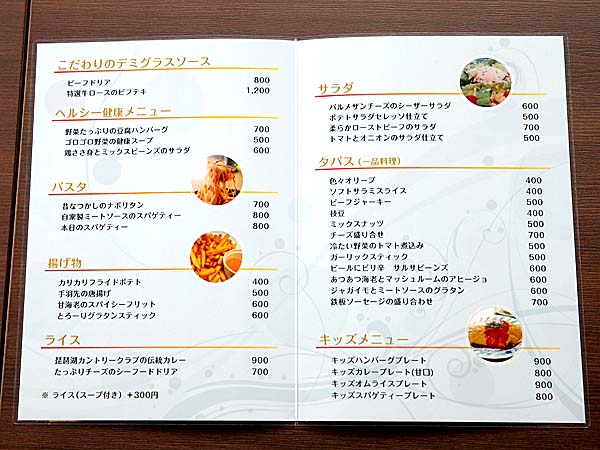 こだわりのデミグラスソース
ビーフドリア 800
特選牛ロースのビフテキ 1,200
ヘルシー健康メニュー
野菜たっぷりの豆腐ハンバーグ 700
ゴロゴロ野菜の健康スープ 500
鶏ささ身とミックスビーンズのサラダ 600
パスタ
昔なつかしのナポリタン 700
自家製ミートソースのスパゲティー 800
本日のスパゲティー 800
揚げ物
カリカリフライドポテト 400
手羽先の唐揚げ 500
甘海老のスパイシーフリット 600
とろーりグラタンスティック 600
ライス
琵琶湖カントリークラブの伝統カレー 900
たっぷりチーズのシーフードドリア 700
※ ライス(スープ付き) +300円
サラダ
パルメザンチーズのシーザーサラダ 600
ポテトサラダセレッソ仕立て 500
柔らかローストビーフのサラダ 700
トマトとオニオンのサラダ仕立て 500
タパス (一品料理)
色々オリーブ 400
ソフトサラミスライス 400
ビーフジャーキー 500
枝豆 400
ミックスナッツ 500
チーズ盛り合せ 700
冷たい野菜のトマト煮込み 500
ガーリックスティック 500
ビールにピリ辛 サルサビーンズ 600
あつあつ海老とマッシュルームのアヒージョ 600
ジャガイモとミートソースのグラタン 600
鉄板ソーセージの盛り合わせ 700
キッズメニュー
キッズハンバーグプレート 900
キッズカレープレート(甘口) 800
キッズオムライスプレート 900
キッズスパゲティープレート 800